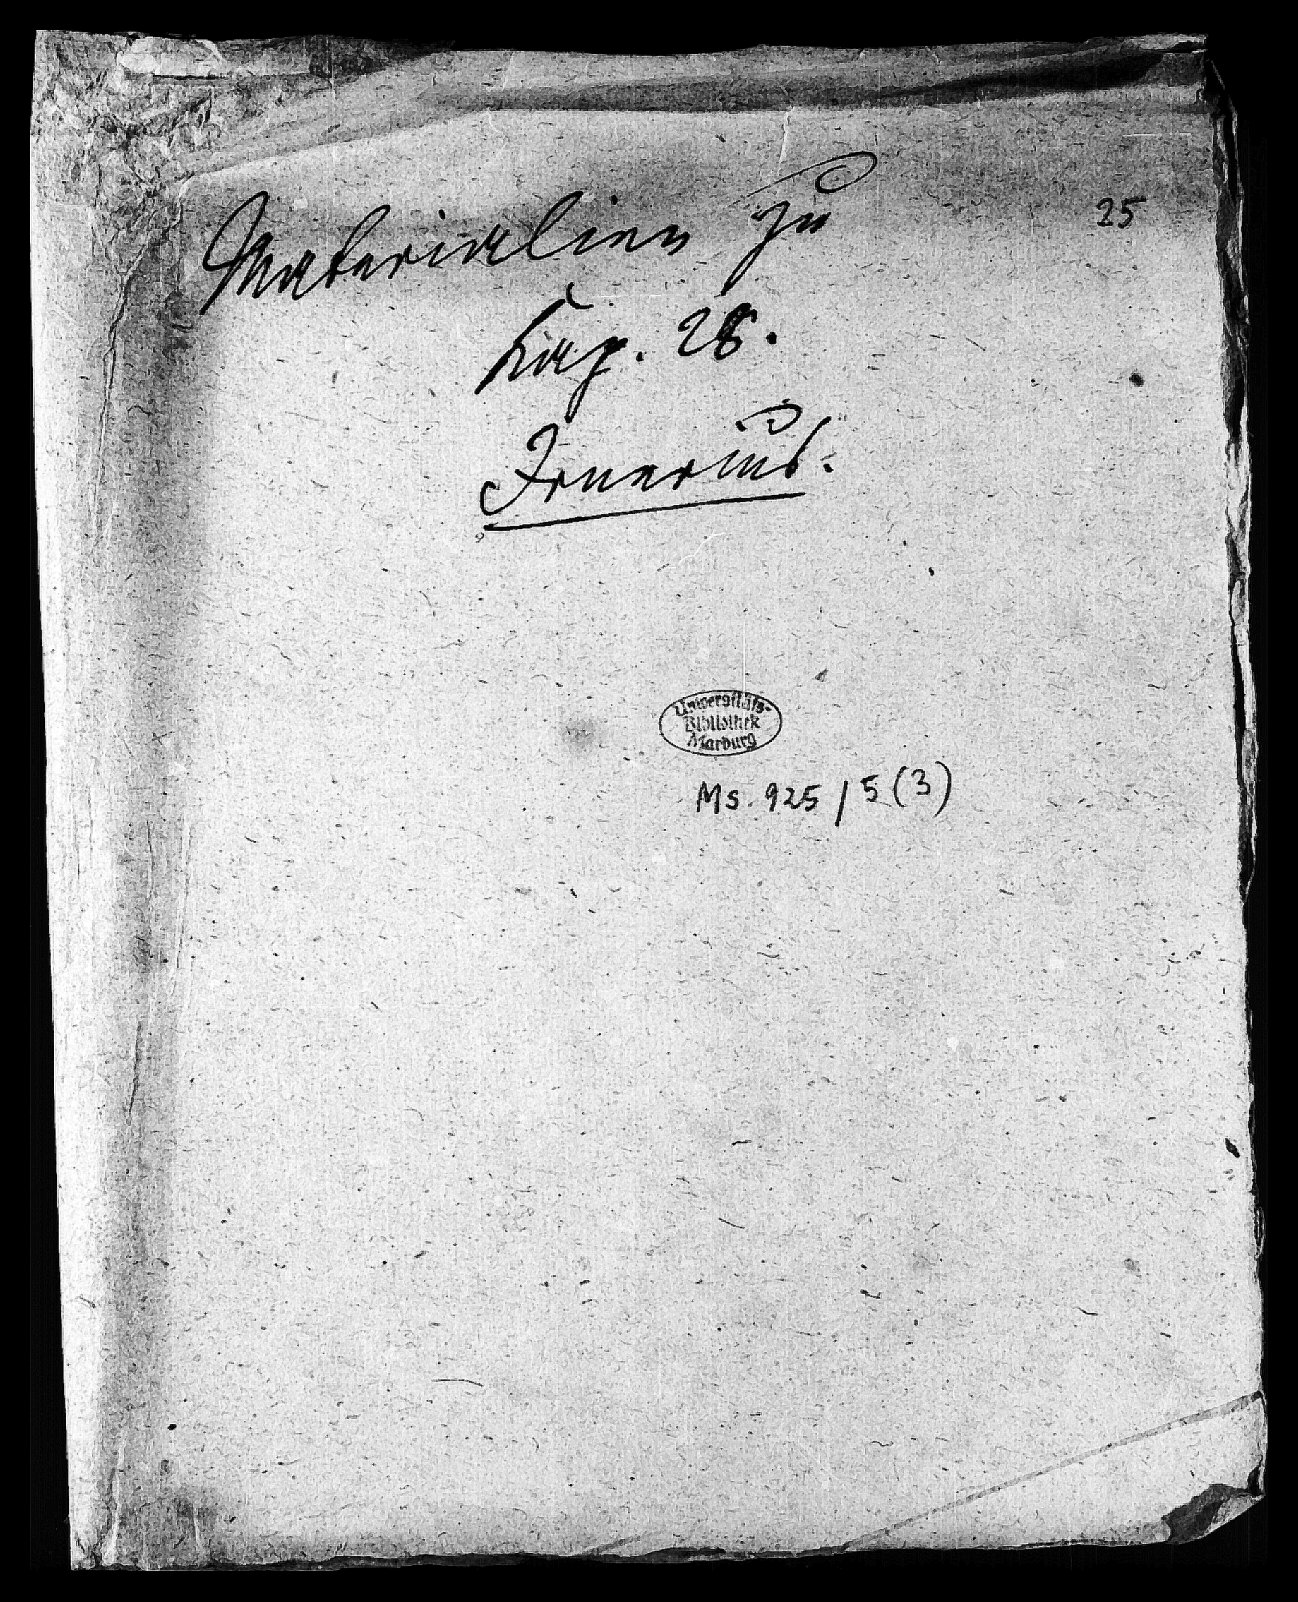 25
Materialien zu
Kap. 26.
Irnerius.
Universitäts-
Bibliothek
Marburg
Ms. 925/5(3)